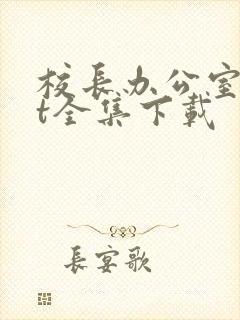 校長办公室
t全集下載
長宴歌